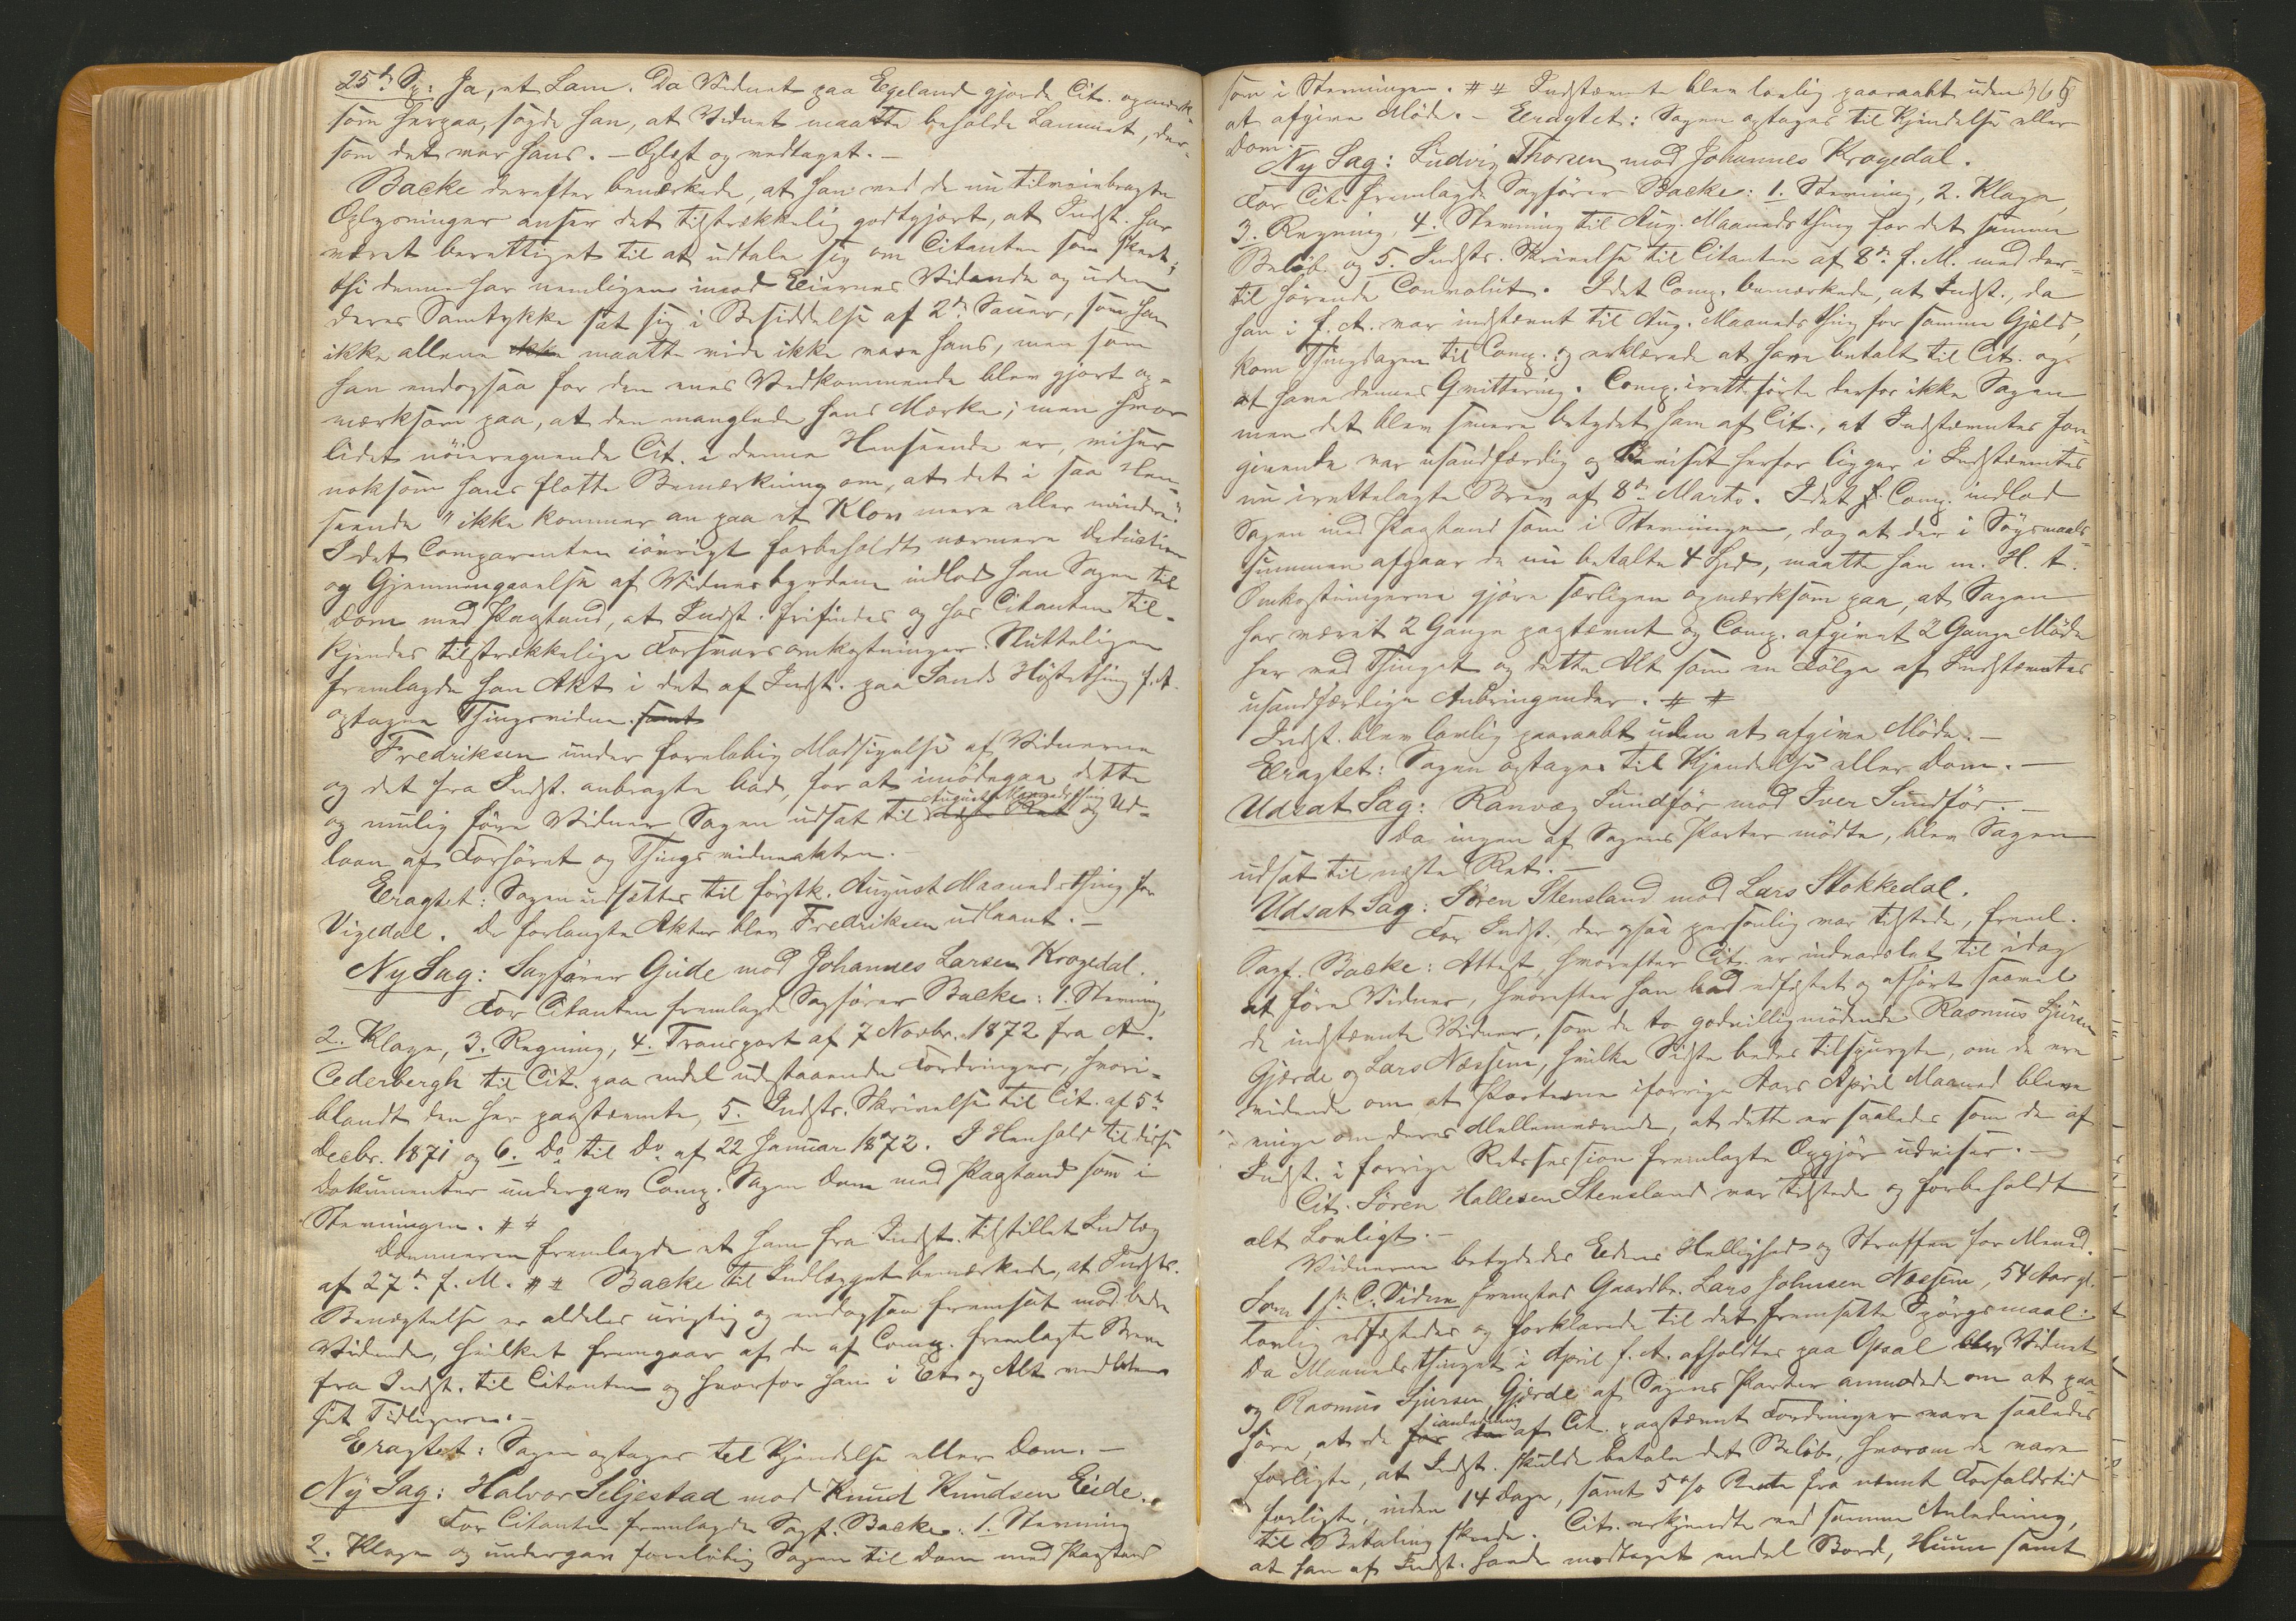 25de Sp: Ja, et Lam. Da Vidnet paa Egeland gjorde Cit. opmærk-
som herpaa, sagde han, at Vidnet maatte beholde Lammet, der-
som det var hans. – Oplæst og vedtaget. –
Backe derefter bemærkede, at han ved de nu tilveiebragte
Oplysninger anser det tilstrækkelig godtgjort, at Indst. har
været berettiget til at udtale sig om Citanten som skeet;
thi denne har nemligen imod Eiernes Vidende og uden
deres Samtykke sat sig i Besiddelse af 2de Sauer, som han
ikke allene ikke maatte vide ikke være hans, men som
han endogsaa for den enes Vedkommende blev gjort op-
mærksom paa, at den manglede hans Mærke; men hvor
lidet nöieregnende Cit. i denne Henseende er, viser
noksom hans flotte Bemærkning om, at det i saa Hen-
seende "ikke kommer an paa et Klov mere eller mindre".
Idet Comparenten iövrigt forbeholdt nærmere Deduction
og Gjennemgaaelse af Vidnesbyrdene indlod han Sagen til
Dom med Paastand, at Indst. frifindes og hos Citanten til-
kjendes tilstrækkelige Forsvarsomkostninger. Sluttelig
fremlagde han Akt i det af Indst. paa Sands Höstething f. A.
optagne Thingsvidne. samt
Fredriksen under foreløbig Modsigelse af Vidnerne
og det fra Indst. anbragte bad, for at imödegaa dette
og mulig före Vidner Sagen udsat til Augusts Maanedsthing og Ud-
laan af Forhöret og Thingsvidneakten.
Eragtet: Sagen udsættes til förstk. August Maanedsthing for
Vigedal. De forlangte Akter blev Fredriksen udlaant. –
Ny Sag: Sagförer Gude mod Johannes Larsen Krogedal.
For Citanten fremlagde Sagförer Backe: 1. Stevning,
2. Klage, 3. Regning, 4. Transport af 7 Novbr. 1872 fra A.
Cederbergh til Cit. paa endel udestaaende Fordringer, hvori-
blandt den her paastævnte, 5. Indsts. Skrivelse til Cit. af 5te
Decbr. 1871 og 6. Do til Do af 22 Januar 1872. I Henhold til disse
Dokumenter undergav Comp. Sagen Dom med Paastand som i
Stevningen. ##
Dommeren fremlagde et ham fra Indst. tilstillet Indlæg
af 27de f. M. ## Backe til Indlægget bemærkede, at Indsts.
Benægtelse er aldeles urigtig og endogsaa fremsat mod bedre
Vidende, hvilket fremgaar af de af Comp. fremlagte Breve
fra Indst. til Citanten og hvorfor han i Et og Alt vedblev
sit Tidligere. –
Eragtet: Sagen optages til Kjendelse eller Dom. –
Ny Sag: Halvor Seljestad mod Knud Knudsen Eide.
For Citanten fremlagde Sagf. Backe: 1. Stevning
2. Klage og undergav foreløbig Sagen til Dom med Paastand
som i Stevningen. ## Indstævnte blev lovlig paaraabt uden
365
at afgive Möde. – Eragtet: Sagen optages til Kjendelse eller
Dom.
Ny Sag: Ludvig Thorsen mod Johannes Krogedal.
For Cit. fremlagde Sagförer Backe: 1. Stevning, 2. Klage,
3. Regning, 4. Stevning til Aug. Maanedsthing for det samme
Belöb og 5. Indsts. Skrivelse til Citanten af 8de f. M. med der-
til hörende Convolut. Idet Comp. bemærkede, at Indst., da
han i f. A. var indstævnt til Aug. Maaneds thing for samme Gjæld,
kom Thingdagen til Comp. og erklærede at have betalt til Cit. og
at have dennes Qvittering. Comp. irettefört derfor ikke Sagen
men det blev senere betydet ham af Cit., at Indstævntes Fore-
givende var usandfærdig og Beviset herfor ligger i Indstævntes
nu irettelagte Brev af 8de Marts. Idet Comp. indlod
Sagen med Paastand som i Stevningen, dog at der i Sögsmaals-
summen afgaar de nu betalte 4 Spd, maatte han m. H. t.
Omkostningerne gjöre særligen opmærksom paa, at Sagen
har været 2 Gange paastævnt og Comp. afgivet 2 Gange Möde
her ved Thinget og dette Alt som en Fölge af Indstævntes
usandfærdige Anbringender. ##
Indst. blev lovlig paaraabt uden at afgive Möde. –
Eragtet: Sagen optages til Kjendelse eller Dom. –
Udsat Sag: Ranvæg Sundför mod Iver Sundför. –
Da ingen af Sagens Parter mödte, blev Sagen
udsat til næste Ret. –
Udsat Sag: Sören Stensland mod Lars Stokkedal.
For Indst., der ogsaa personlig var tilstede, freml.
Sagf. Backe: Attest, hvorefter Cit. er indvarslet til idag
at före Vidner, hvorefter han bad edfæstet og afhört saavel
de indstævnte Vidner, som de to godvilligmödende Rasmus Sjursen
Gjærde og Lars Næssem, hvilke Sidste bedes tilspurgte, om de ere
vidende om at Parterne i forrige Aars April Maaned bleve
enige om deres Mellemværende, at dette er saaledes som de af
Indst. i forrige Retssession fremlagte Opgjör udviser. –
Cit. Sören Hallesen Stensland var tilstede og forbeholdt
alt Lovligt. –
Vidnerne betydedes Edens Hellighed og Straffen for Mened.
Som 1ste C. Vidne fremstod Gaardbr. Lars Johnsen Næssem, 54 Aar gl.
Lovlig edfæstedes og forklarede til det fremsatte Spörgsmaal:
Da Maanedsthinget i April f. A. afholdtes paa Opsal blev Vidnet
og Rasmus Sjursen Gjærde af Sagens Parter anmodede om at paa-
höre, at de for den ianledning af Cit. paastævnt Fordringer vare saaledes
forligte, at Indst. skulde betale det Belöb, hvorom de vare
forligte, inden 14 Dage, samt 5 % Rente fra nævnt Forfaldstid
til Betaling skede. Cit. erkjendte ved samme Anledning,
at han af Indst. havde modtaget endel Bord, Huun samt